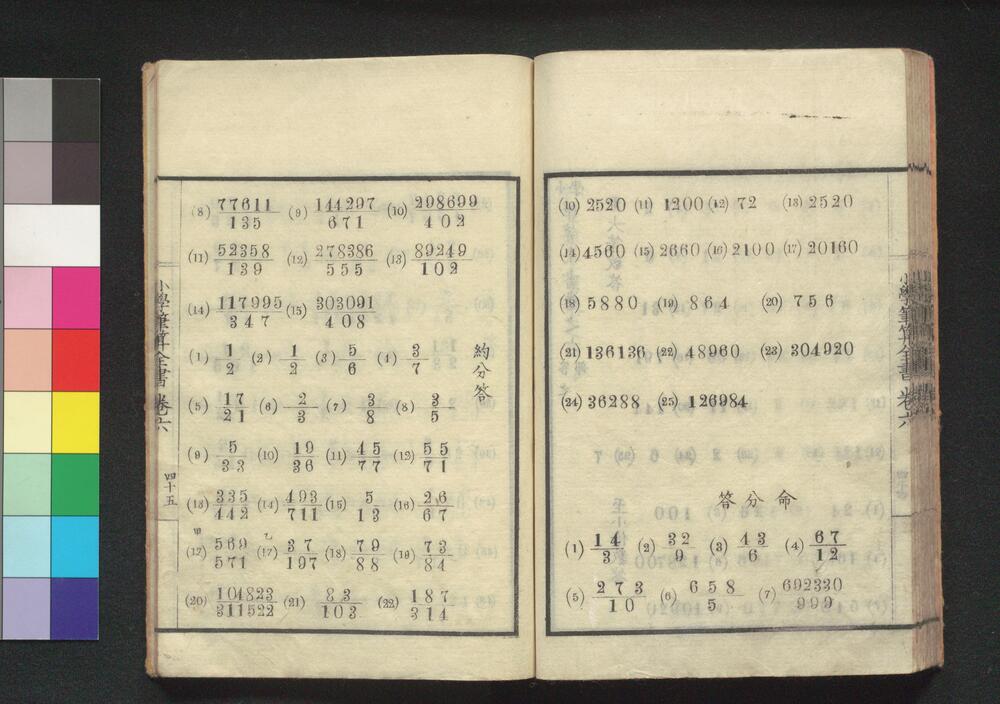 (10) 2520 (11) 1200 (12) 72 (13) 2520
(14) 4560 (15) 2660 (16) 2100 (17) 20160
(18) 5880 (19) 864 (20) 756
(21) 136136 (22) 48960 (23) 304920
(24) 36288 (25) 126984
答分命
(1) 14/3 (2) 32/9 (3) 43/6 (4) 67/12
(5) 273/10 (6) 658/5 (7) 692330/999
小學筆算全書 卷六
(8) 77611/135 (9) 144297/671 (10) 298699/402
(11) 52358/139 (12) 278386/555 (13) 89249/102
(14) 117995/347 (15) 303091/408
約分答
(1) 1/2 (2) 1/2 (3) 5/6 (4) 3/7
(5) 17/21 (6) 2/3 (7) 3/8 (8) 3/5
(9) 5/33 (10) 19/36 (11) 45/77 (12) 55/71
(13) 335/442 (14) 493/711 (15) 5/13 (16) 26/67
甲 乙
(17) 569/571 (17) 37/197 (18) 79/88 (19) 73/84
(20) 104823/311522 (21) 83/103 (22) 187/314
小學筆算全書 卷六
四十五